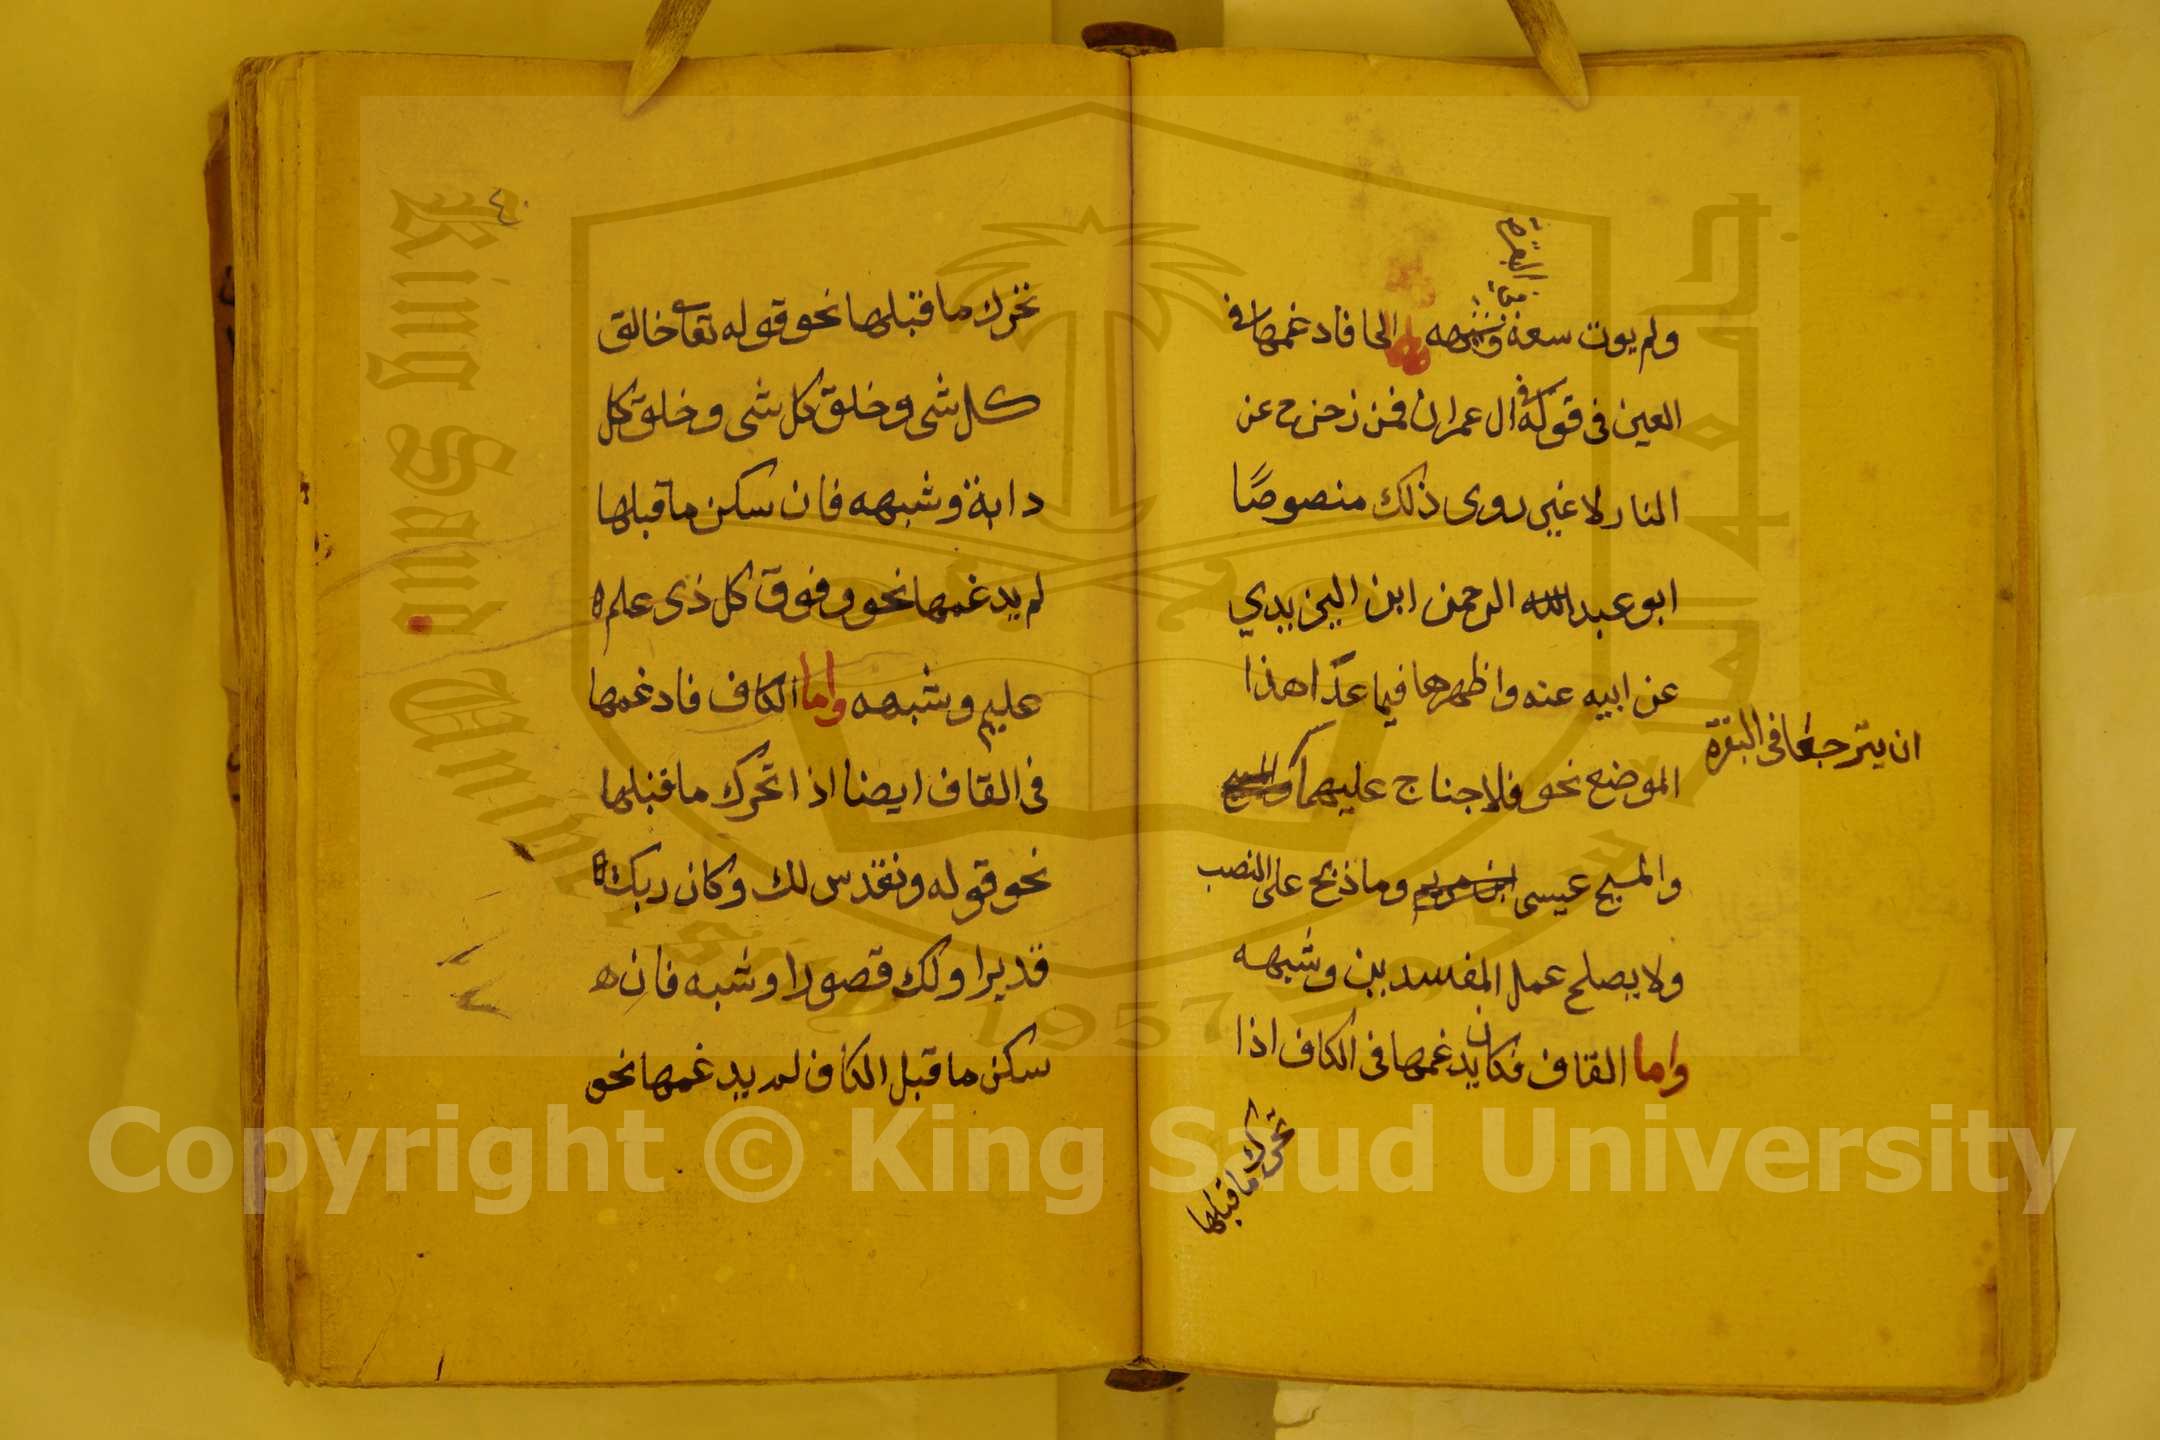 ولم يوت سعة وشبهه واما الحا فادغمها فى
العين فى قوله فى ال عمران فمن زحزح عن
النار لاغير روى ذلك منصوصًا
ابو عبد الله الرحمن ابن اليزيدي
عن ابيه عنه واظهرها فيما عدا هذا
الموضع نحو فلا جناح عليهما
ان يتراجعا فى البقرة
والمسيح عيسى ابن مريم وما ذبح على النصب
ولا يصلح عمل المفسدين وشبهه
واما القاف فكان يدغمها فى الكاف اذا
تحرك ما قبلها
٤٠
تحرك ما قبلها نحو قوله تعالى خالق
كل شى وخلق كل شى وخلق كل
دابة وشبهه فان سكن ما قبلها
لم يدغمها نحو وفوق كل ذى علم ه
عليم وشبهه واما الكاف فادغمها
فى القاف ايضا اذا تحرك ما قبلها
نحو قوله ونقدس لك وكان ربك
قديرا ولك قصورا وشبه فان ه
سكن ما قبل الكاف لم يدغمها نحو
جامعة الملك سعود
King Saud University
1957
Copyright © King Saud University